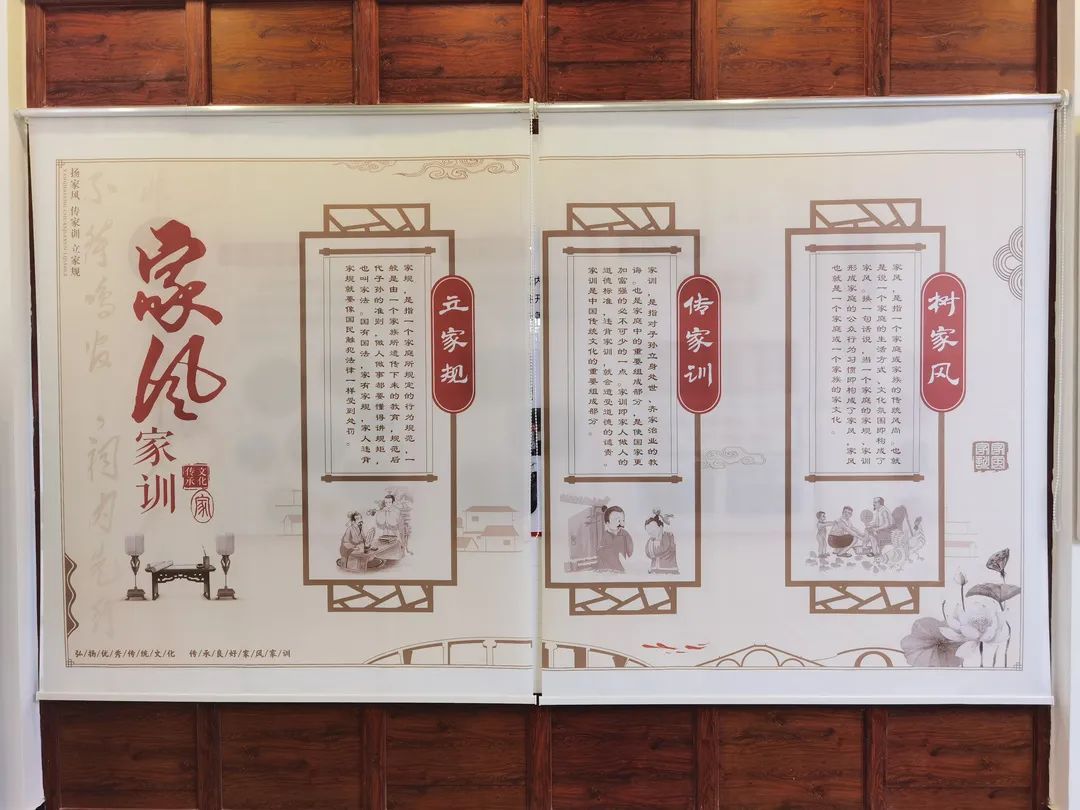 扬家风 传家训 立家规
家风
家训
文化
传承
家
立家规
家规，是指一个家庭所规定的行为规范，一
般是由一个家族所遗传下来的教育，规范后
代子孙的准则，做人做事都要懂得讲规矩，
也叫家法。国有国法，家有家规，家人违背
家规就要像国民触犯法律一样受到处罚。
传家训
家训，是指对子孙立身处世、齐家治业的教
诲。也是家庭中的重要组成部分，是使国家更
加富强的必不可少的一点。家训即家人做人的
道德标准，违背家训，就会遭受道德的谴责。
家训是中国传统文化的重要组成部分。
树家风
家风，是指一个家庭或家族的传统风尚。也就
是说一个家庭的生活方式、文化氛围即构成了
家风。换一句话说，当一个家庭的家规、家训
形成家庭的公众行为习惯即构成了家风，家风
也就是一个家庭或一个家族的家文化。
弘/扬/优/秀/传/统/文/化 传/承/良/好/家/风/家/训